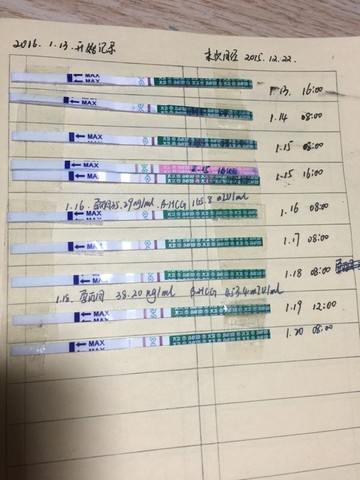 2016. 1.13. 开始记录 末次月经 2015.12.22.
MAX 1.13. 16:00
MAX 1.14 08:00
MAX 1.15 08:00
MAX 1.15 16:00
MAX
1.16. 孕酮35.29ng/ml. β-HCG 165.8 mIU/ml
MAX 1.16 08:00
MAX 1.17 08:00
MAX 1.18 08:00
1.18. 孕酮 38.20 ng/ml β-HCG 453.4mIU/ml
MAX 1.19 12:00
MAX 1.20 08:00